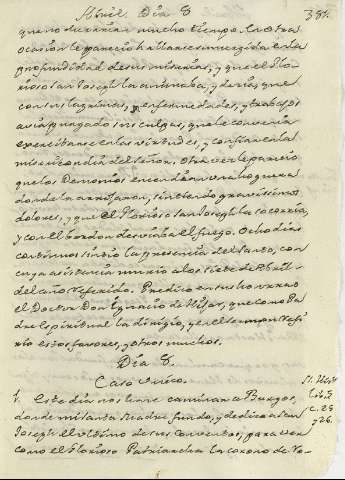 Abril. Dia 8 381.
que no durarian mucho tiempo. En otra
ocasion le parecio hallarse sumergida en la
profundidad de sus miserias, y que el Glo-
rioso San Joseph la animaba, y decia, que
con sus lagrimas, enfermedades, y trabajos
avia purgado sus culpas, que le convenia
exercitarse en las virtudes, y confiar en la
misericordia del Señor. Otra vez le parecio
que los Demonios encendian una hoguera
donde la arrojaron, sintiendo gravissimos
dolores, y que el Glorioso San Joseph la socorria,
y con el bordon desviaba el fuego. Ocho dias
continuos sintio la presencia del Santo, con
cuya asistencia murio a los siete de Abril
del año referido. Predico en sus honras
el Doctor Don Ignacio de Hijar, que como Pa-
dre espiritual la dirigio, y en el sermon refi-
rio estos favores, y otros muchos.
Dia 8.
Caso Unico.
1. Este dia nos hace caminar a Burgos,
donde mi Santa Madre fundo, y dedico a San
Joseph el ultimo de sus Conventos, para ver
como el Glorioso Patriarcha la corono de Vo-
Lib. 5
c. 25
y 26.